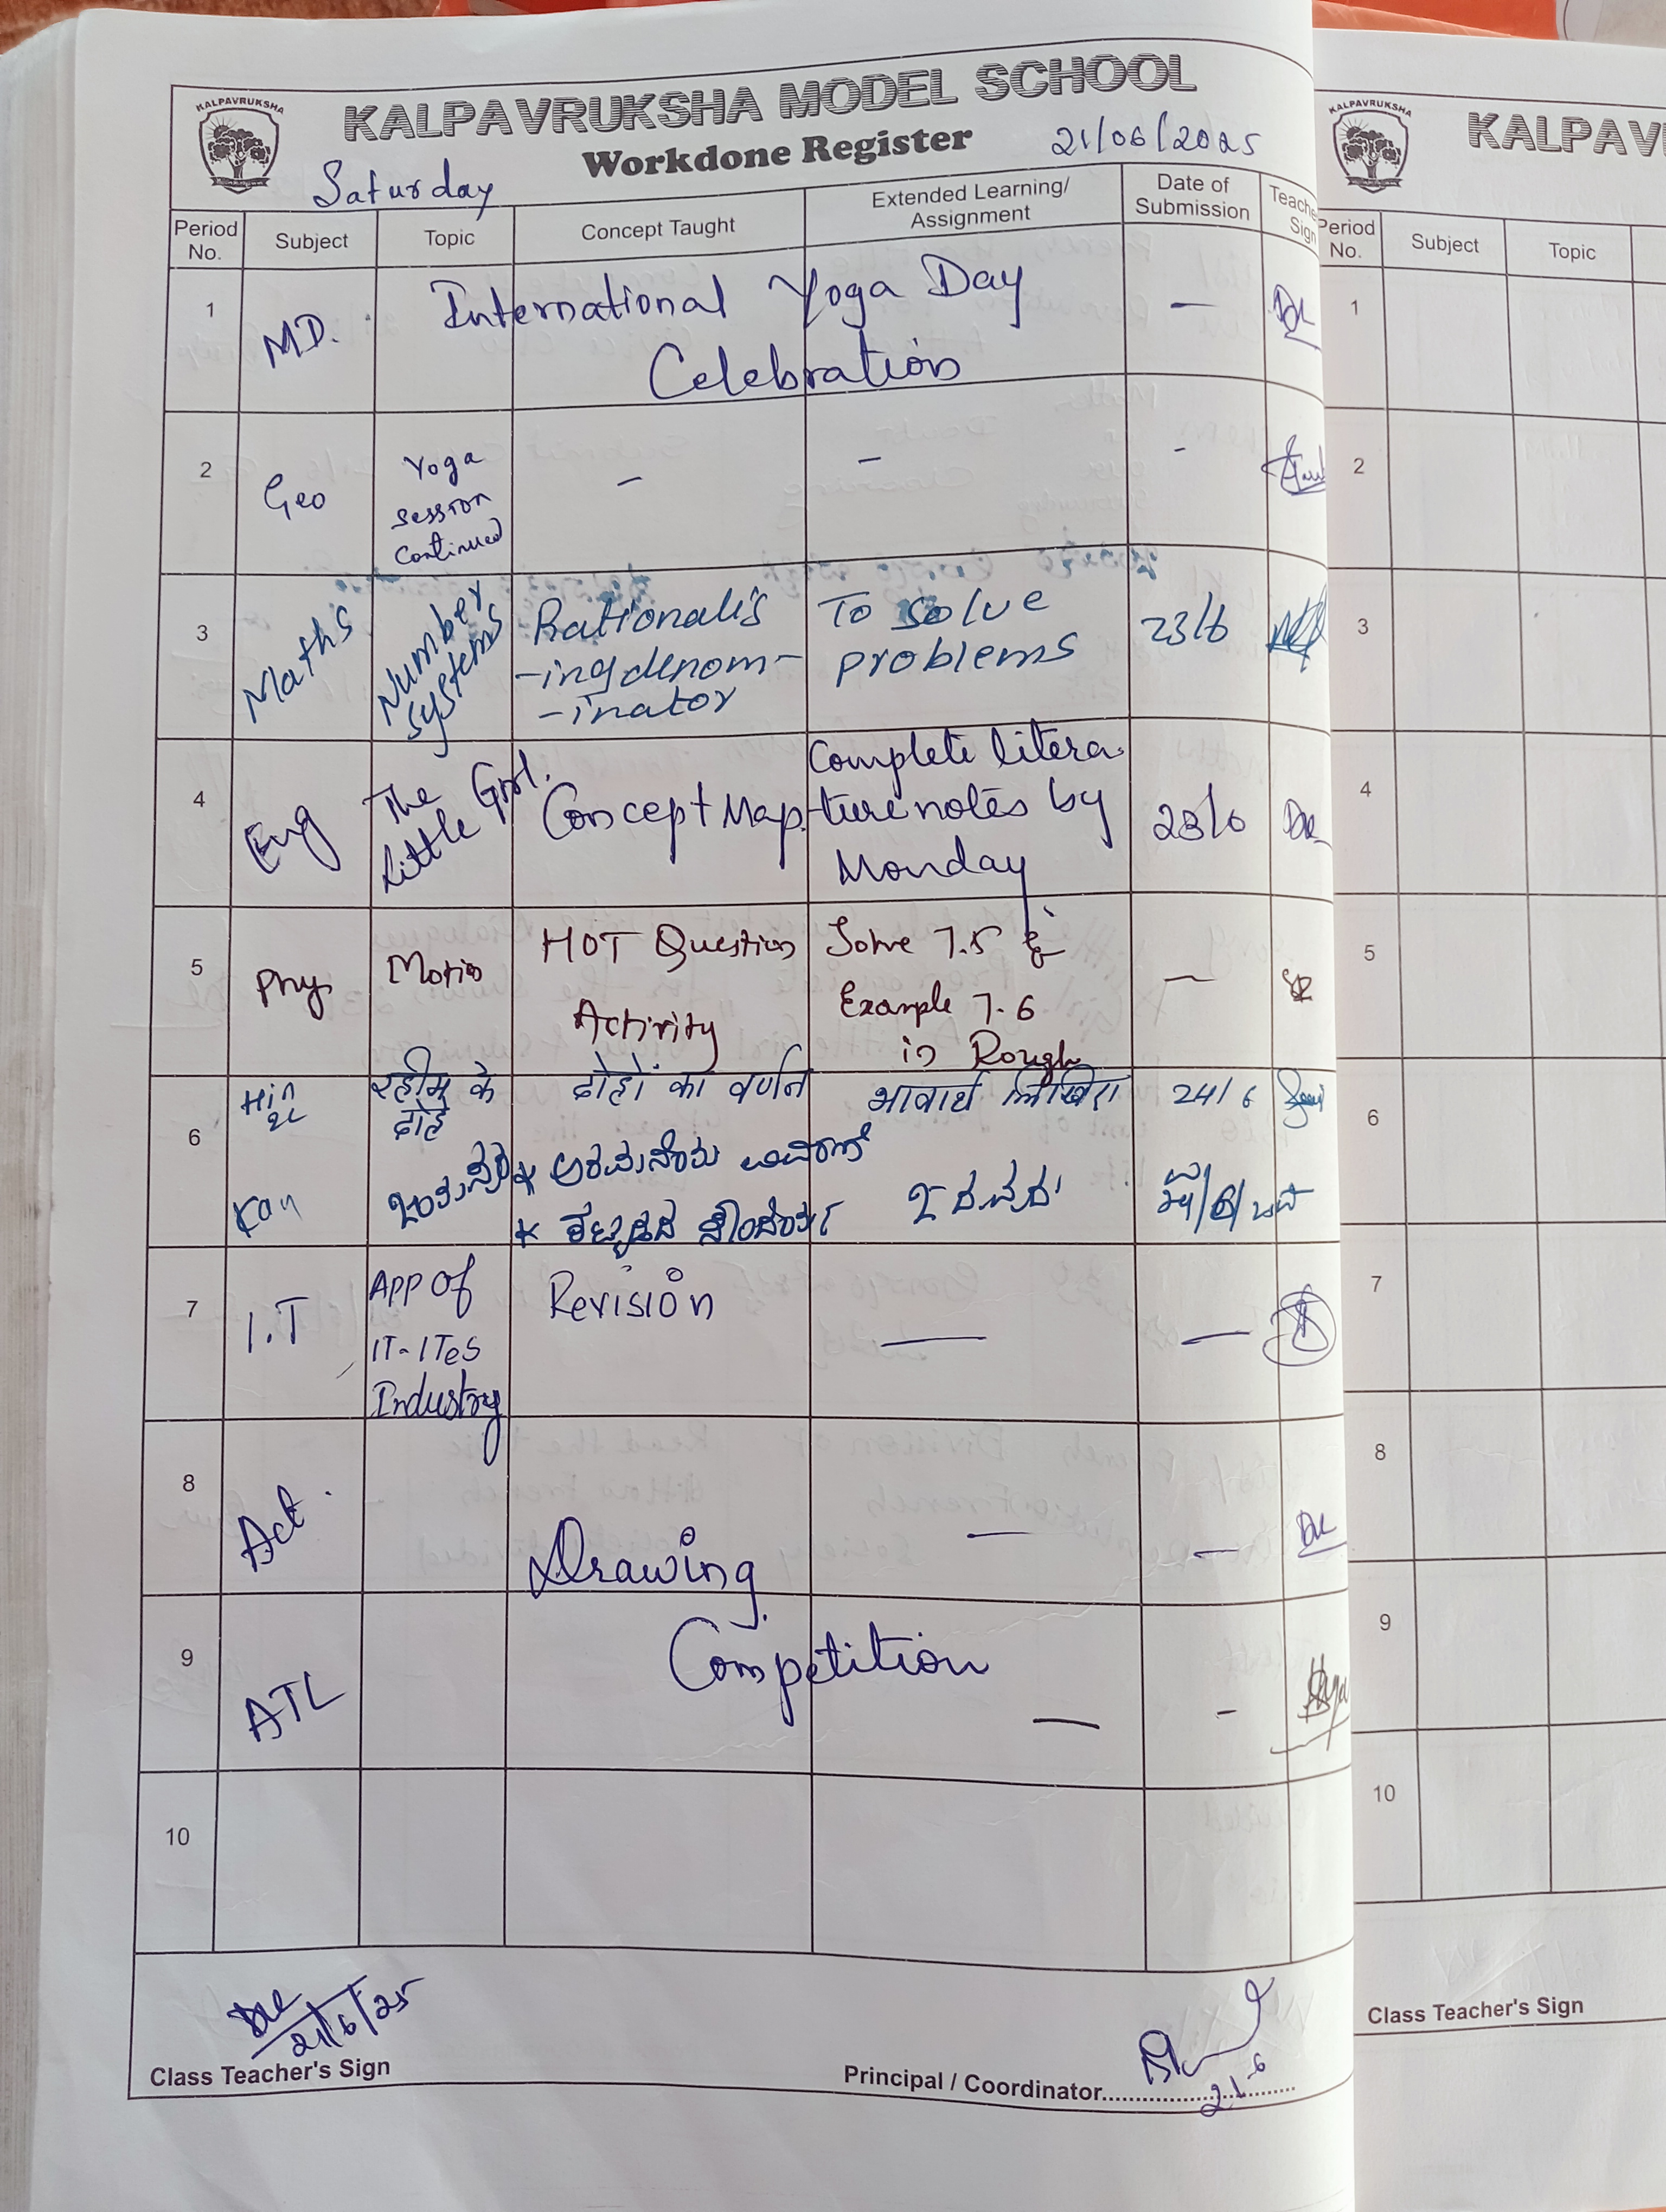 KALPAVRUKSHA
KALPAVRUKSHA MODEL SCHOOL
Workdone Register
21/06/2025
Saturday
Period No.
Subject
Topic
Concept Taught
Extended Learning/ Assignment
Date of Submission
Teache
Sign
1
M.D.
International Yoga Day
Celebration
—
2
Geo
Yoga
session
continued
—
—
-
3
Maths
Number
systems
Rationalis
-ing denom-
-inator
To solve
problems
23/6
4
Eng
The
Little Girl.
Concept Map.
Complete litera-
ture notes by
Monday
23/6
5
Phy
Motion
HOT Question
Activity
Solve 7.5 &
Example 7.6
in Rough
—
6
Hin
रहीम के
दोहे
दोहों का वर्णन
भावार्थ लिखिए
24/6
Kan
7
I.T
APP Of
IT-ITeS
Industry
Revision
—
—
8
Act.
Drawing
—
—
9
ATL
Competition
—
-
10
21/6/25
Class Teacher's Sign
Principal / Coordinator
21-6
KALPAVRUKSHA
KALPAV
Period No.
Subject
Topic
1
2
3
4
5
6
7
8
9
10
Class Teacher's Sign